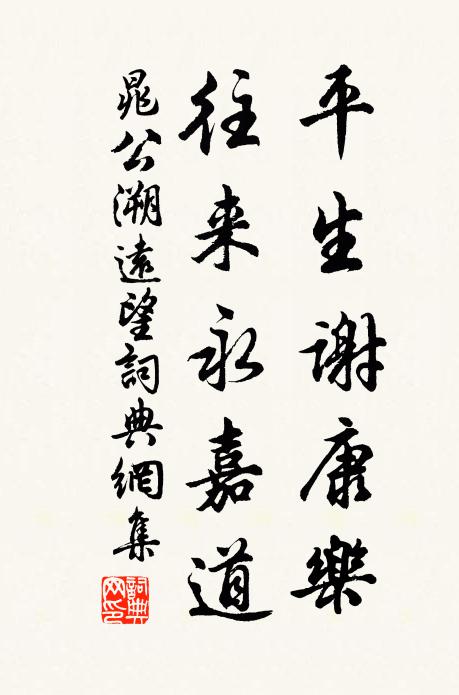 平生謝康樂
往来永嘉道
晁公溯遠望詞典網集
詞典网印